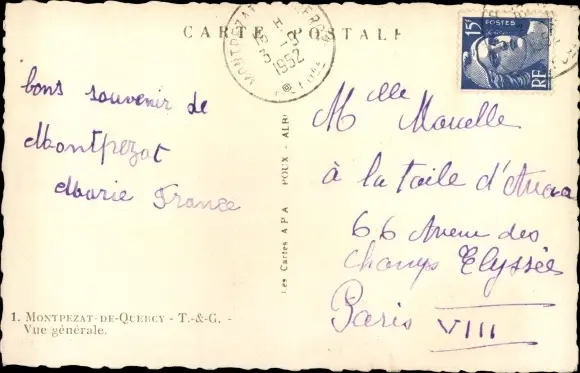 CARTE POSTALE
MONTPEZAT
1952
15F
POSTES
RF
bons souvenir de
Montpezat
Marie France
Les Cartes APA POUX - ALBI
Mlle Marcelle
à la taile d'
66 Avenue des
Champs Elyssées
Paris VIII
1. MONTPEZAT-DE-QUERCY - T.-&-G. -
Vue générale.